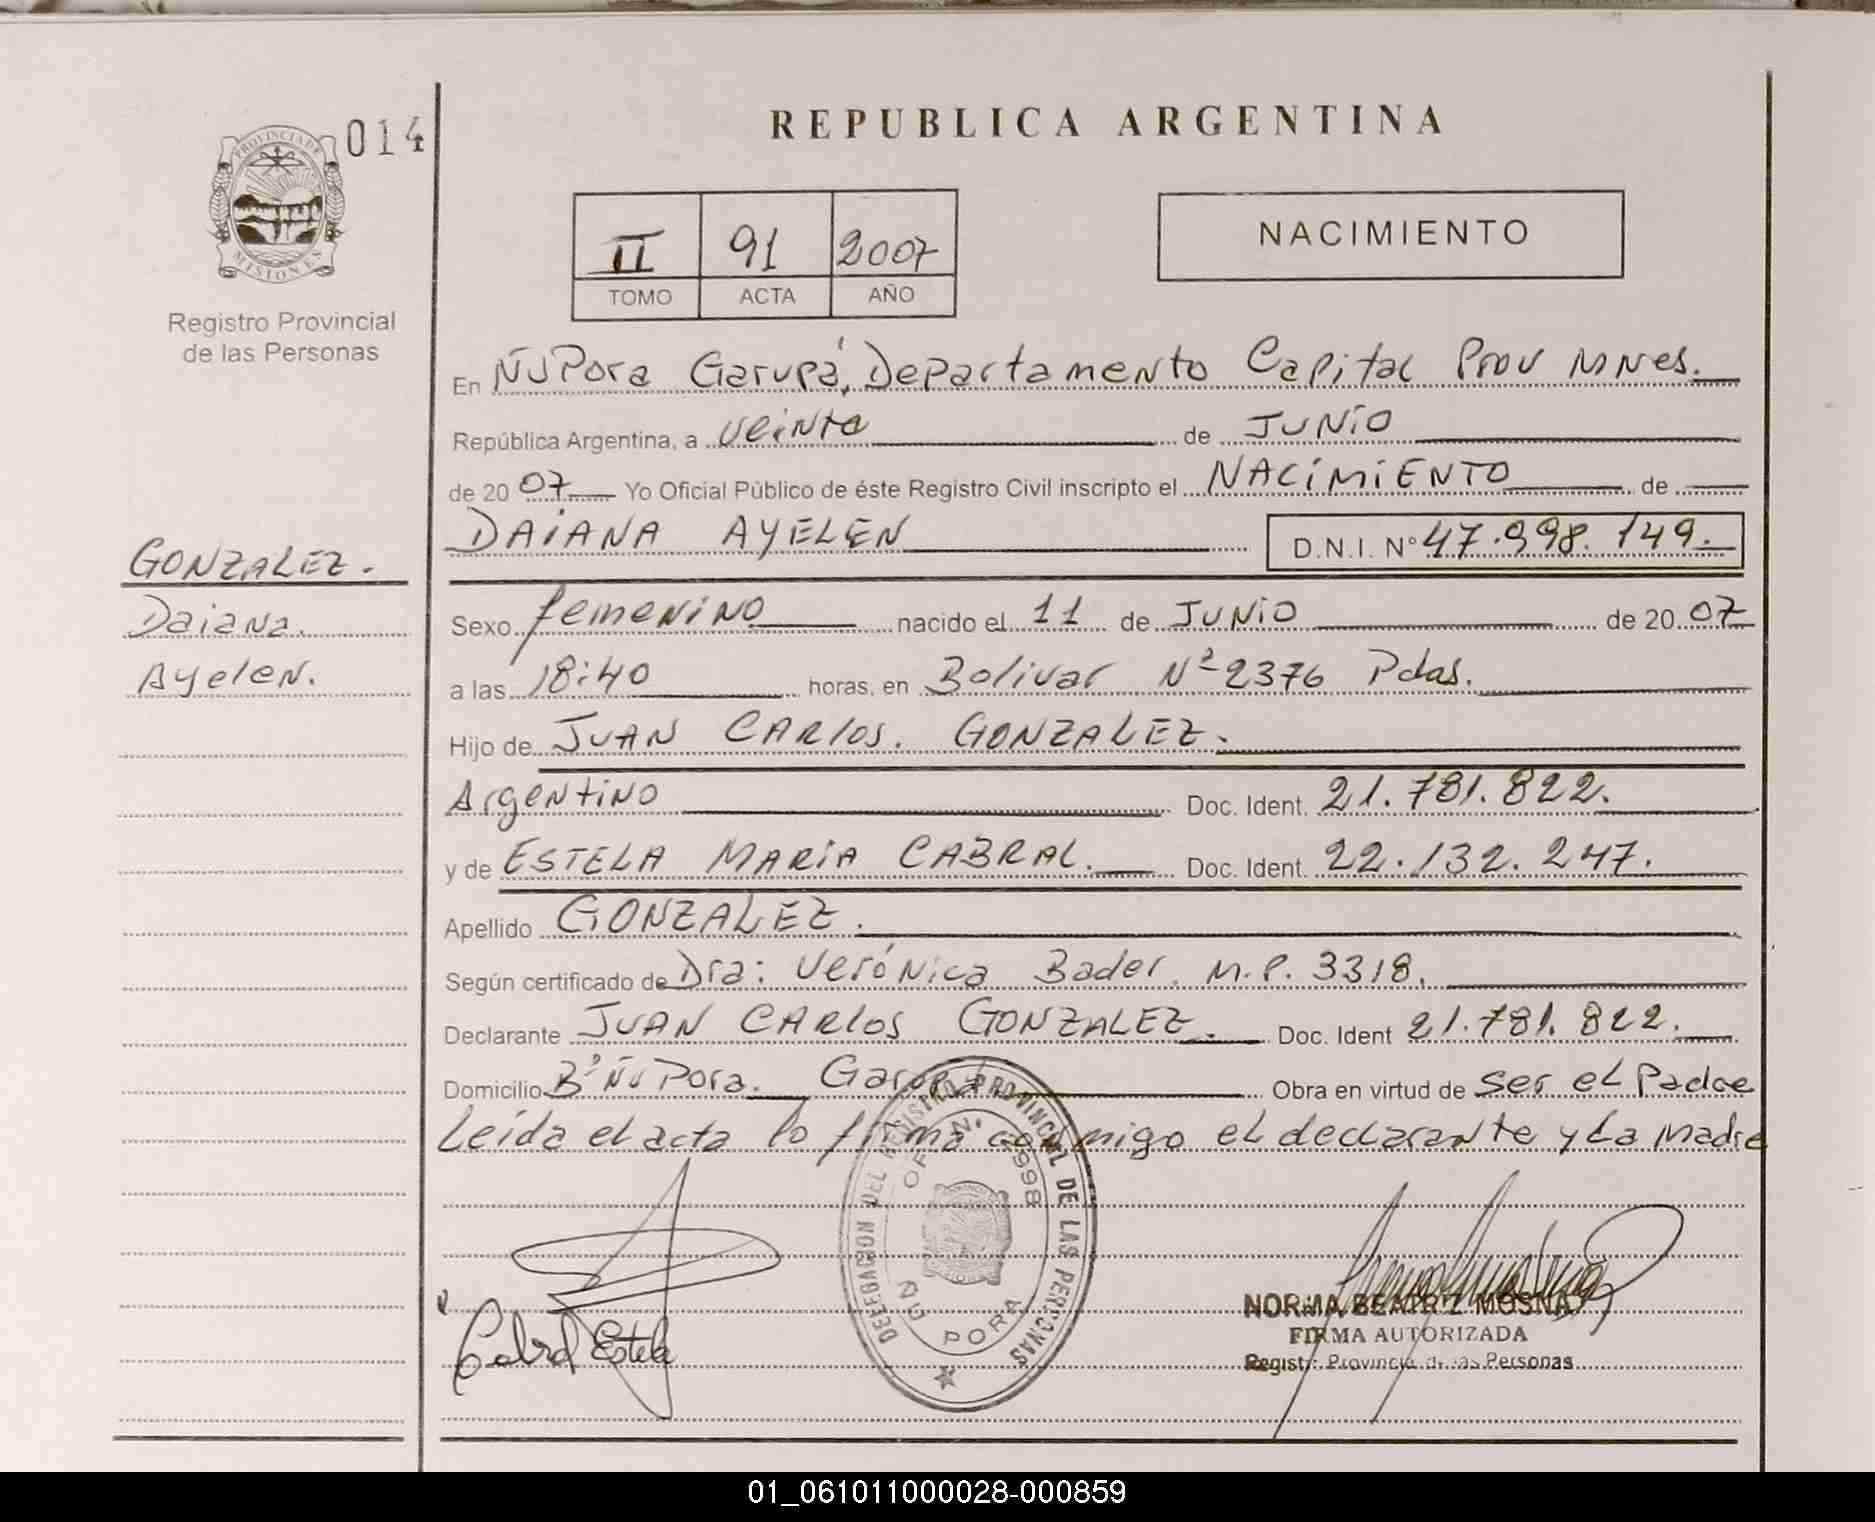 014
PROVINCIA DE
MISIONES
Registro Provincial
de las Personas
GONZALEZ.
Daiana.
Ayelen.
REPUBLICA ARGENTINA
II 91 2007
TOMO ACTA AÑO
NACIMIENTO
En ÑU Pora Garupá, Departamento Capital Prov MNes.
República Argentina, a veinte de JUNIO
de 2007 Yo Oficial Público de éste Registro Civil inscripto el NACIMIENTO de
DAIANA AYELEN D.N.I. Nº 47.998.149.
Sexo femenino nacido el 11 de JUNIO de 2007
a las 18:40 horas, en Bolivar Nº 2376 Pdas.
Hijo de JUAN CARlos. GONZALEZ.
Argentino Doc. Ident. 21.781.822.
y de ESTELA MARIA CABRAL. Doc. Ident. 22.132.247.
Apellido GONZALEZ.
Según certificado de Dra: Verónica Bader. M.P. 3318.
Declarante JUAN CARlos GONZALEZ. Doc. Ident 21.781.822.
Domicilio Bº Ñu Pora. Garupá Obra en virtud de ser el Padre
Leída el acta lo firma conmigo el declarante y La Madre
DELEGACION DEL REGISTRO PROVINCIAL DE LAS PERSONAS
OF. N. 2998
ÑU PORA
Cabral Estela
NORMA BEATRIZ MOSNA
FIRMA AUTORIZADA
Registro Provincial de las Personas
01_061011000028-000859